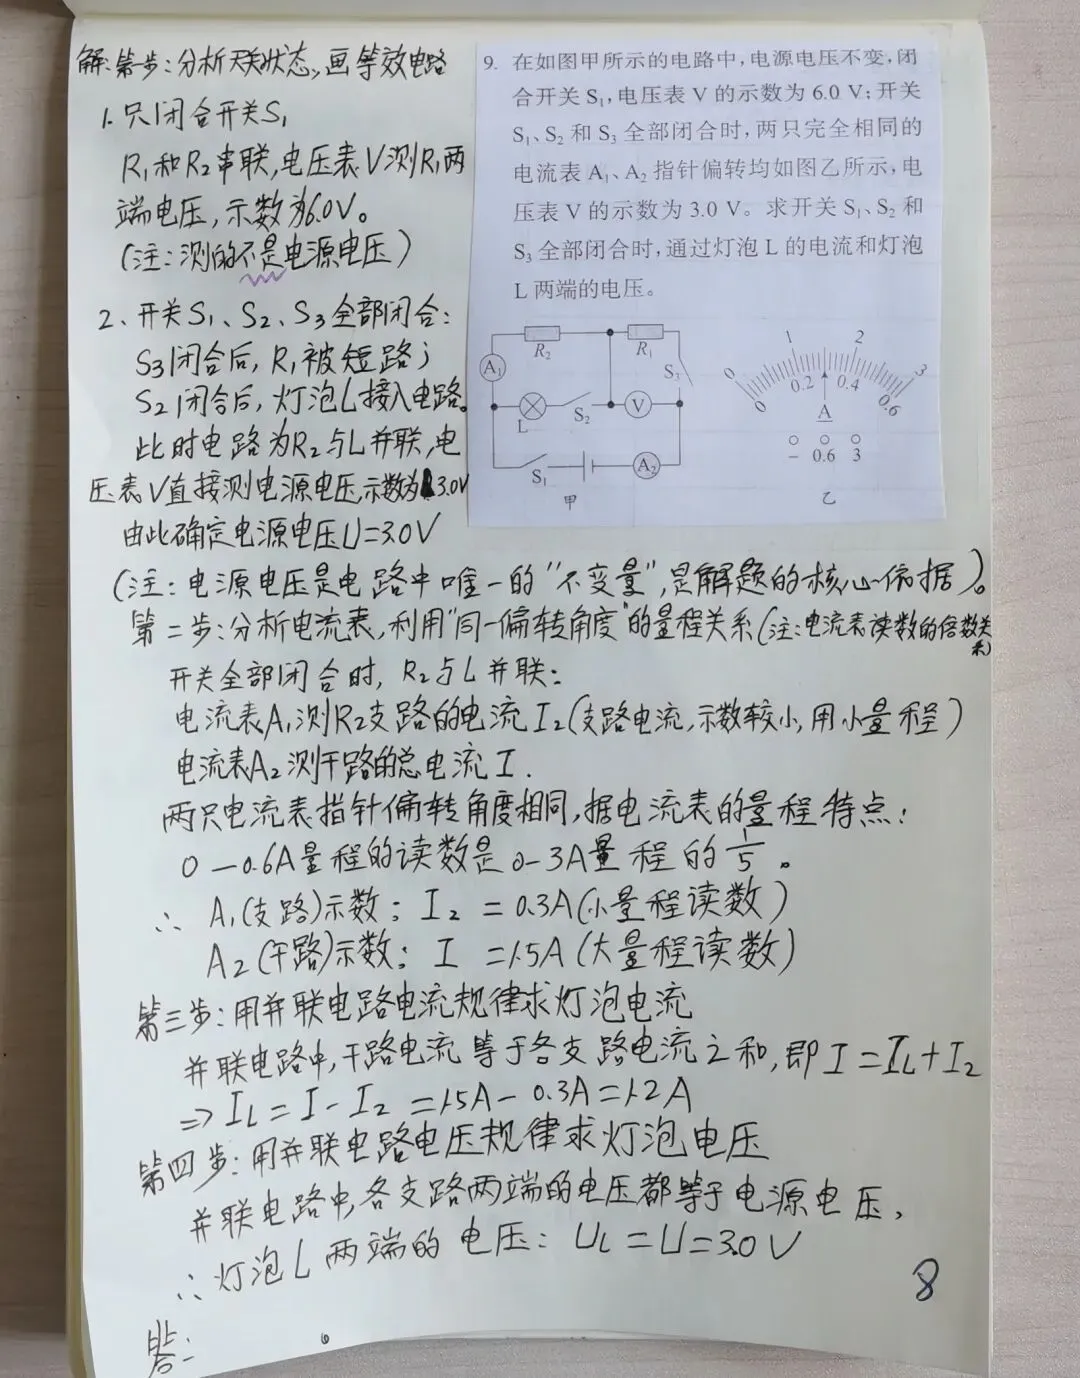 解:第一步:分析开关状态,画等效电路
1.只闭合开关S₁
R₁和R₂串联,电压表V测R₁两
端电压,示数为6.0V。
(注:测的不是电源电压)
2、开关S₁、S₂、S₃全部闭合:
S₃闭合后,R₁被短路;
S₂闭合后,灯泡L接入电路。
此时电路为R₂与L并联,电
压表V直接测电源电压,示数为3.0V
由此确定电源电压U=3.0V
9. 在如图甲所示的电路中,电源电压不变,闭
合开关 S₁,电压表 V 的示数为 6.0 V;开关
S₁、S₂ 和 S₃ 全部闭合时,两只完全相同的
电流表 A₁、A₂ 指针偏转均如图乙所示,电
压表 V 的示数为 3.0 V。求开关 S₁、S₂ 和
S₃ 全部闭合时,通过灯泡 L 的电流和灯泡
L 两端的电压。
R₂ R₁
A₁ S₃
L S₂ V
S₁ A₂
甲
0 1 2 3
0 0.2 0.4 0.6
A
− 0.6 3
乙
(注:电源电压是电路中唯一的“不变量”,是解题的核心依据)。
第二步:分析电流表,利用“同一偏转角度”的量程关系(注:电流表读数的倍数关
系)
开关全部闭合时,R₂与L并联:
电流表A₁测R₂支路的电流I₂(支路电流,示数较小,用小量程)
电流表A₂测干路的总电流I.
两只电流表指针偏转角度相同,据电流表的量程特点:
0—0.6A量程的读数是0-3A量程的1/5。
∴ A₁(支路)示数:I₂=0.3A(小量程读数)
A₂(干路)示数:I=1.5A(大量程读数)
第三步:用并联电路电流规律求灯泡电流
并联电路中,干路电流等于各支路电流之和,即I=I_L+I₂
⇒I_L=I-I₂=1.5A-0.3A=1.2A
第四步:用并联电路电压规律求灯泡电压
并联电路中,各支路两端的电压都等于电源电压,
∴灯泡L两端的电压:U_L=U=3.0V
答:
8